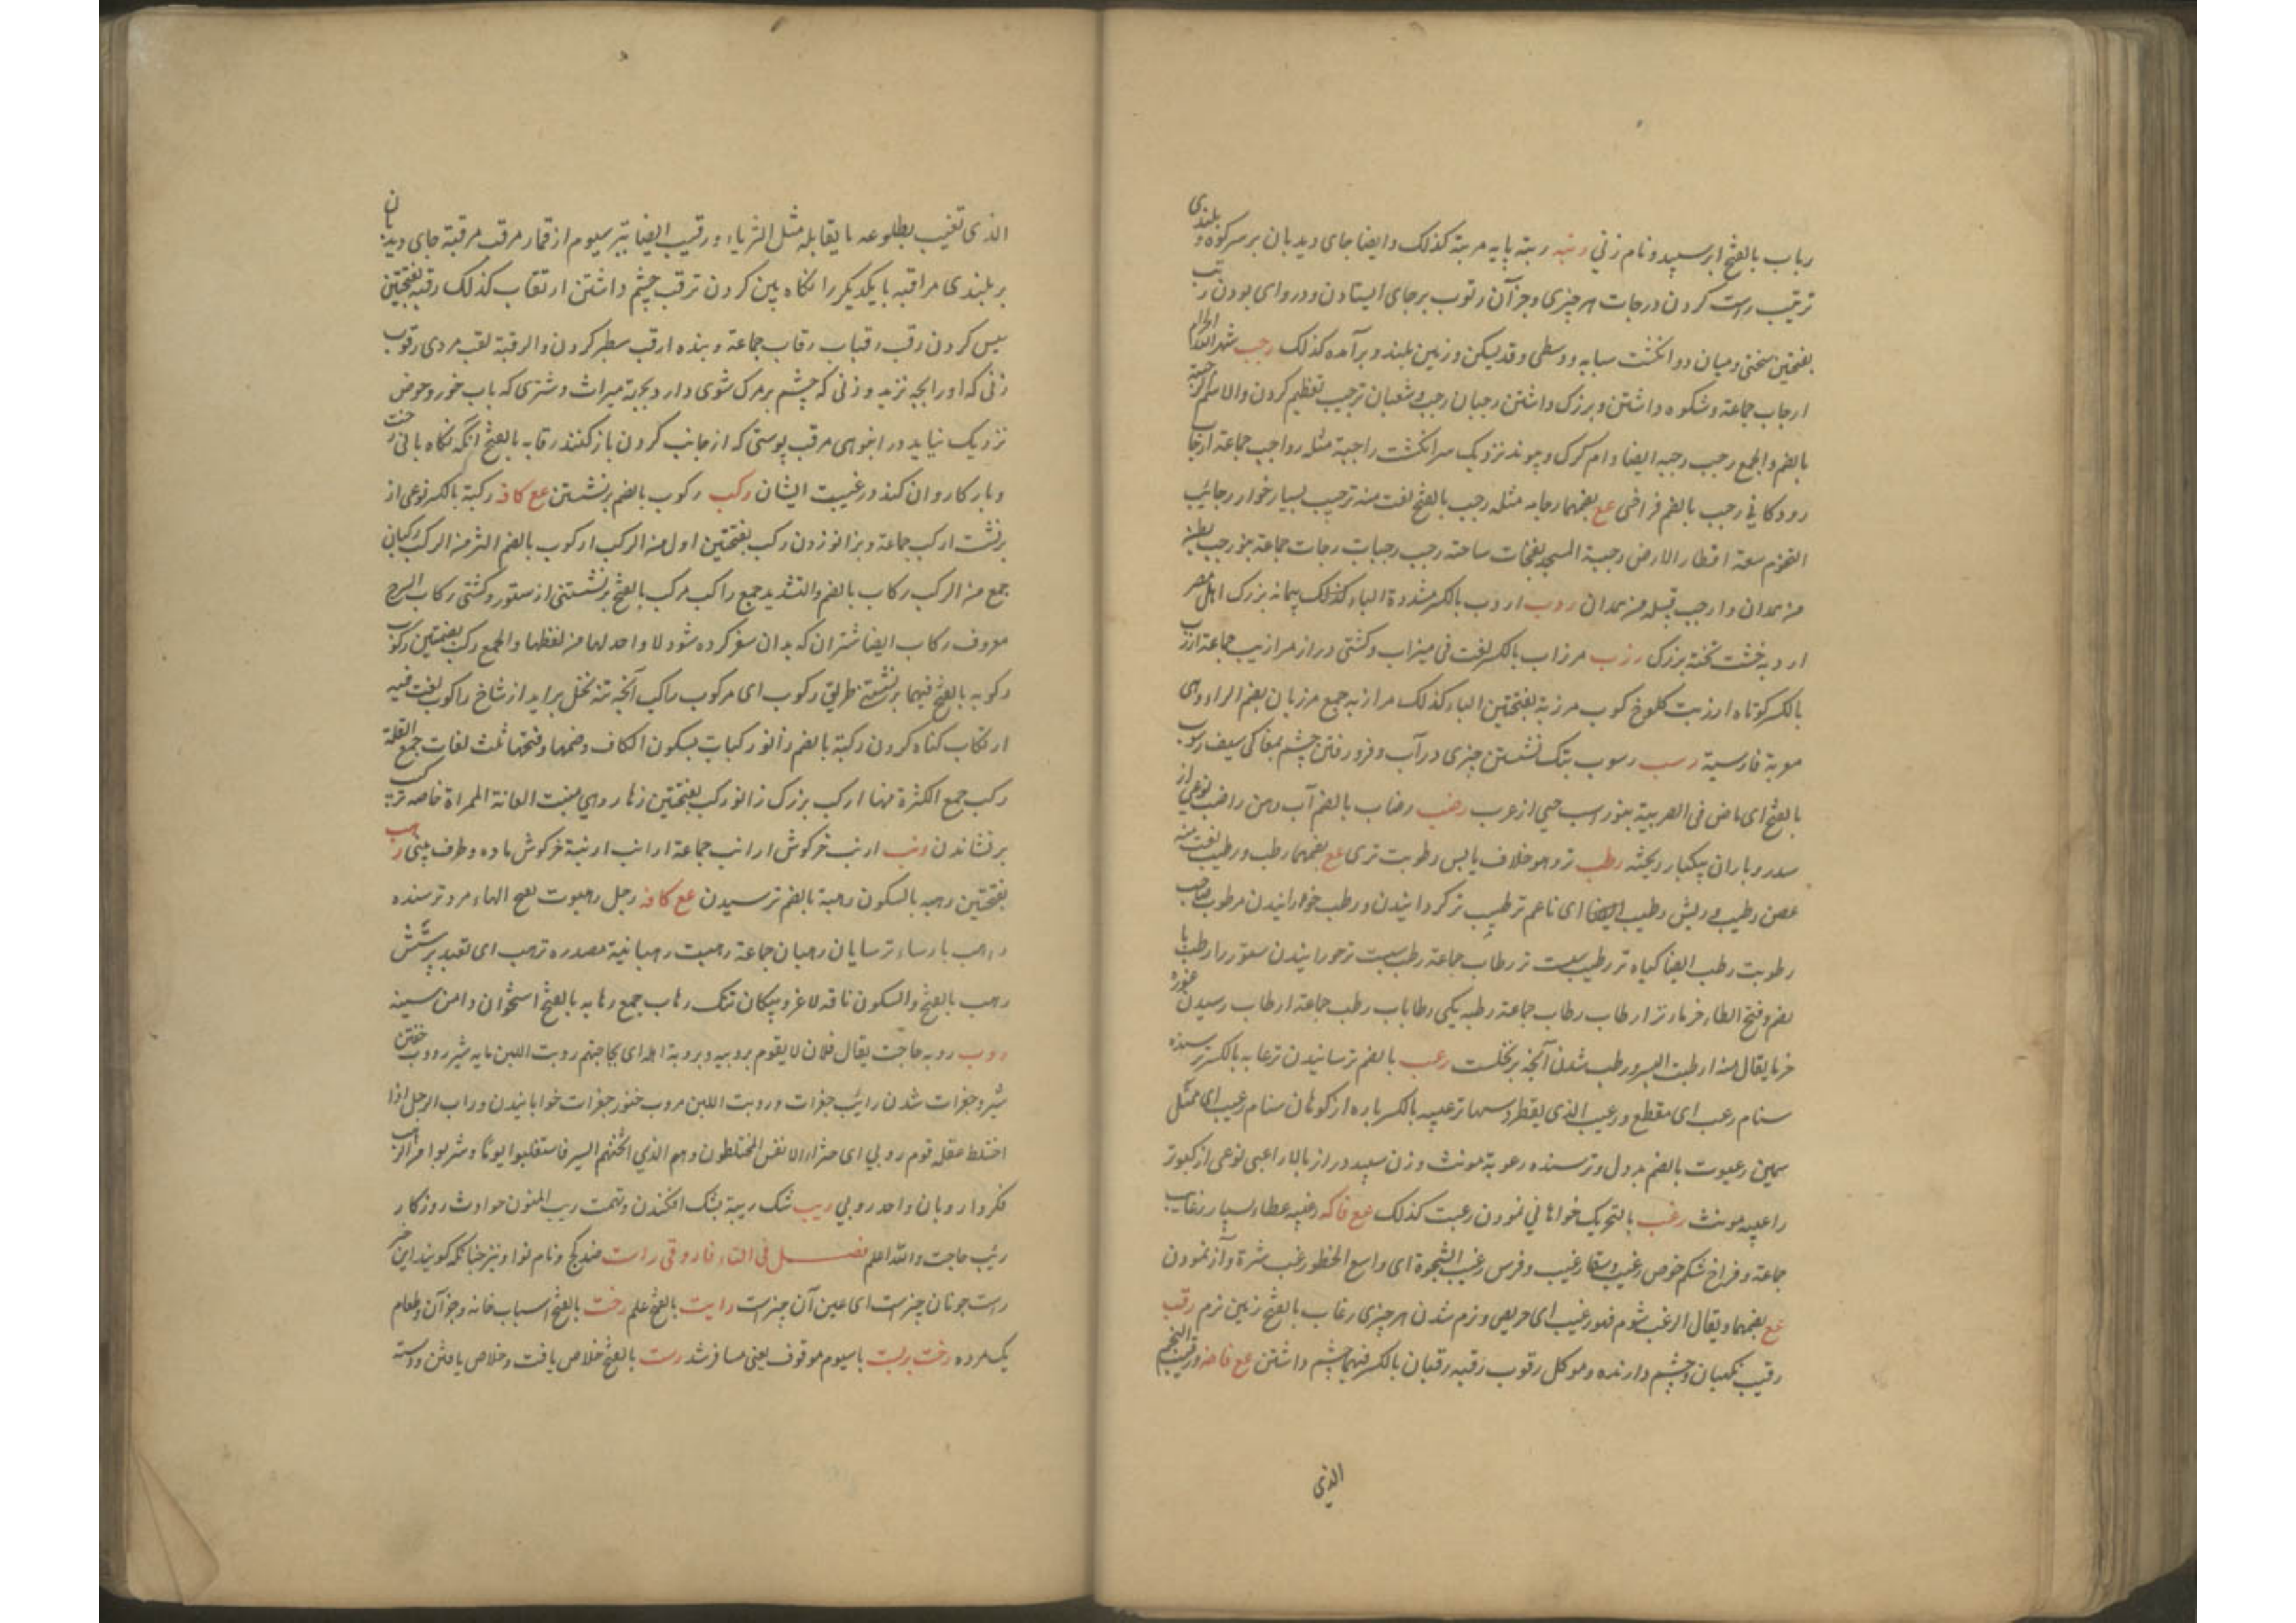 رباب بالفتح ابر سپید و نام زنی رتبه رتبة پایه مرتبة کذلک و ایضا جای دیدبان بر سر کوه و بلندی
ترتیب راست کردن درجات هر چیزی و جز آن رتوب بر جای ایستادن و دروای بودن رتب
بفتحتین سختی و میان دو انگشت سبابه و وسطی و قد یسکن و زمین بلند و برآمده کذلک رجب شهر الله الحرام
ارجاب جماعة و شکوه داشتن و بزرک داشتن رجبان رجب و شعبان ترجیب تعظیم کردن والاسم الرجبة
بالضم والجمع رجب رجبه ایضا دام کرک و پیوند نزدیک سر انکشت راجبة مثله رواجب جماعة ارجاب
رودکانی رحب بالضم فراخی ع ع بضمهما رحابه مثله رحب بالفتح لغت منه ترحیب بسیار خوار رحائب
التخوم سعة اقطار الارض رحبة المسجد بفتحات ساحته رحب رحبات رحاب جماعة بنو رحب بطن
من همدان و ارحب قبیله من همدان ردب اردب بالکسر مشددة الباء کذلک پیمانه بزرک اهل مصر
اردبه خشت پخته بزرک رزب مرزاب بالکسر لغت فی میزاب و کشتی دراز مرازیب جماعة ارزب
بالکسر کوتاه ارزبت کلوخ کوب مرزبة بفتحتین الباء کذلک مرازبه جمع مرزبان بضم الراء و هی
معربة فارسیة رسب رسوب بتک نشستن چیزی در آب و فرو رفتن چشم بمغاکی سیف رسوب
بالفتح ای ماض فی الضریبة بنو راسب حیی از عرب رضب رضاب بالضم آب دهن راضب نوعی از
سدر و باران یکبار ریخته رطب تر و هو خلاف یابس رطوبت تری ع ع بضمهما رطب و رطیب لغت منه
غصن رطیب و ریش رطیب ایضا ای ناعم ترطیب تر کردانیدن و رطب خورانیدن مرطوب صاحب
رطوبت رطب ایضا کیاه تر رطیب تر رطاب جماعة رطب تر خورانیدن ستور را رطب با
بضم و فتح الطاء خرماء تر ارطاب رطاب جماعة رطبه یکی رطاباب رطب جماعة ارطاب رسیدن غوره
خرما یقال منه ارطبت البسر و رطب شدن آنچه بر نخلست رعب بالضم ترسانیدن ترعابه بالکسر ترسنده
سنام رعب ای مقطع و رعیب الذی یقطر دسما ترعیبه بالکسر پاره از کوهان سنام رعیب ای ممتلی
سمین رعبوت بالضم بددل و ترسنده رعوبة مونث و زن سپید دراز بالا راعبی نوعی از کبوتر
راعبیه مونث رغب بالتحریک خواهانی نمودن رغبت کذلک ع ع فاکه رغیبه عطاء بسیار رغائب
جماعة و فراخ شکم حوض رغیب و سقاء رغیب و فرس رغیب الشحوة ای واسع الخطو رغب شرة و آز نمودن
ع ع بضمهما و یقال الرغب شوم فهو رغیب ای حریص و نرم شدن هر چیزی رغاب بالفتح زمین نرم رقب
رقیب نکهبان و چشم دارنده و موکل رقوب رقبه رقبان بالکسر فیهما چشم داشتن ع ع فاصه و رقیب النجم
الذی
الذی تغیب بطلوعه یا یقابله مثل الثریاء و رقیب ایضا تیر سیوم از قمار مرقب مرقبة جای دیدبان
بر بلندی مراقبه با یکدیکر را نکاه بین کردن ترقب چشم داشتن ارتقاب کذلک رقبه بفتحتین
سپس کردن رقب رقبات رقاب جماعة و بنده ارقب سطبر کردن والرقبة لقب مردی رقوب
زنی که او را بچه نزید و زنی که چشم بر مرک شوی دارد بجهة میراث و شتری که باب خور و حوض
نزدیک نیاید در انبوهی مرقب پوستی که از جانب کردن باز کنند رقابه بالفتح آنکه نکاه بانی رخت
و بار کاروان کند در غیبت ایشان رکب رکوب بالضم بر نشستن ع ع کافه رکبة بالکسر نوعی از
برنشست ارکب جماعة و بزانو زدن رکب بفتحتین اول من الرکب ارکوب بالضم اکثر من الرکب رکبان
جمع من الرکب رکاب بالضم والتشدید جمع راکب مرکب بالفتح برنشستنی از ستور و کشتی رکاب السرج
معروف رکاب ایضا شتران که بدان سفر کرده شود لا واحد لها من لفظها والجمع رکب بضمتین رکوب
رکوبه بالفتح فیهما برنشستنی طریق رکوب ای مرکوب راکب آنچه تنه نخل براید از شاخ راکوب لغت فیه
ارتکاب کناه کردن رکبة بالضم زانو رکبات بسکون الکاف و ضمها و فتحها ثلث لغات جمع القلة
رکب جمع الکثرة منها ارکب بزرک زانو رکب بفتحتین زهار و هی منبت العانة للمراة خاصه ترکیب
برنشاندن رنب ارنب خرکوش ارانب جماعة ارانب ارنبة خرکوش ماده و طرف بینی رهب
بفتحتین رهبه بالسکون رهبة بالضم ترسیدن ع ع کافه رجل رهبوت بفتح الهاء مرد ترسنده
راهب پارساء ترسایان رهبان جماعة رهبت رهبانیة مصدره ترهب ای تعبد پرستش
رهب بالفتح والسکون ناقه لاغر و پیکان تنک رهاب جمع رهابه بالفتح استخوان دامن سینه
روب روبه حاجت یقال فلان لا یقوم بروبیه و بروبة اهله ای بحاجتهم روبت اللبن مایه شیر رووب خفتن
شیر و جغرات شدن رائب جغرات و روبت اللبن مروب خنور جغرات خوابانیدن و راب الرجل اذا
اختلط عقله قوم روبی ای خثراء الانفس المختلطون و هم الذی اثخنهم السیر فاستقلبوا نوما و شربوا من الرائب
فکروا روبان واحد روبی ریب شک ریبة بشک افکندن و تهمت ریب المنون حوادث روزکار
ریب حاجت والله اعلم فصل فی التاء فاروقی راست ضد کج و نام نوا و نیز چنانکه کویند این خبر
راست چونان چیزست ای عین آن چیزست رایت بالفتح علم رخت بالفتح اسباب خانه و جز آن و طعام
یک مرده رخت بربست با سیوم موقوف یعنی مسافر شد رست بالفتح خلاص یافت و خلاص یافتن و رسته